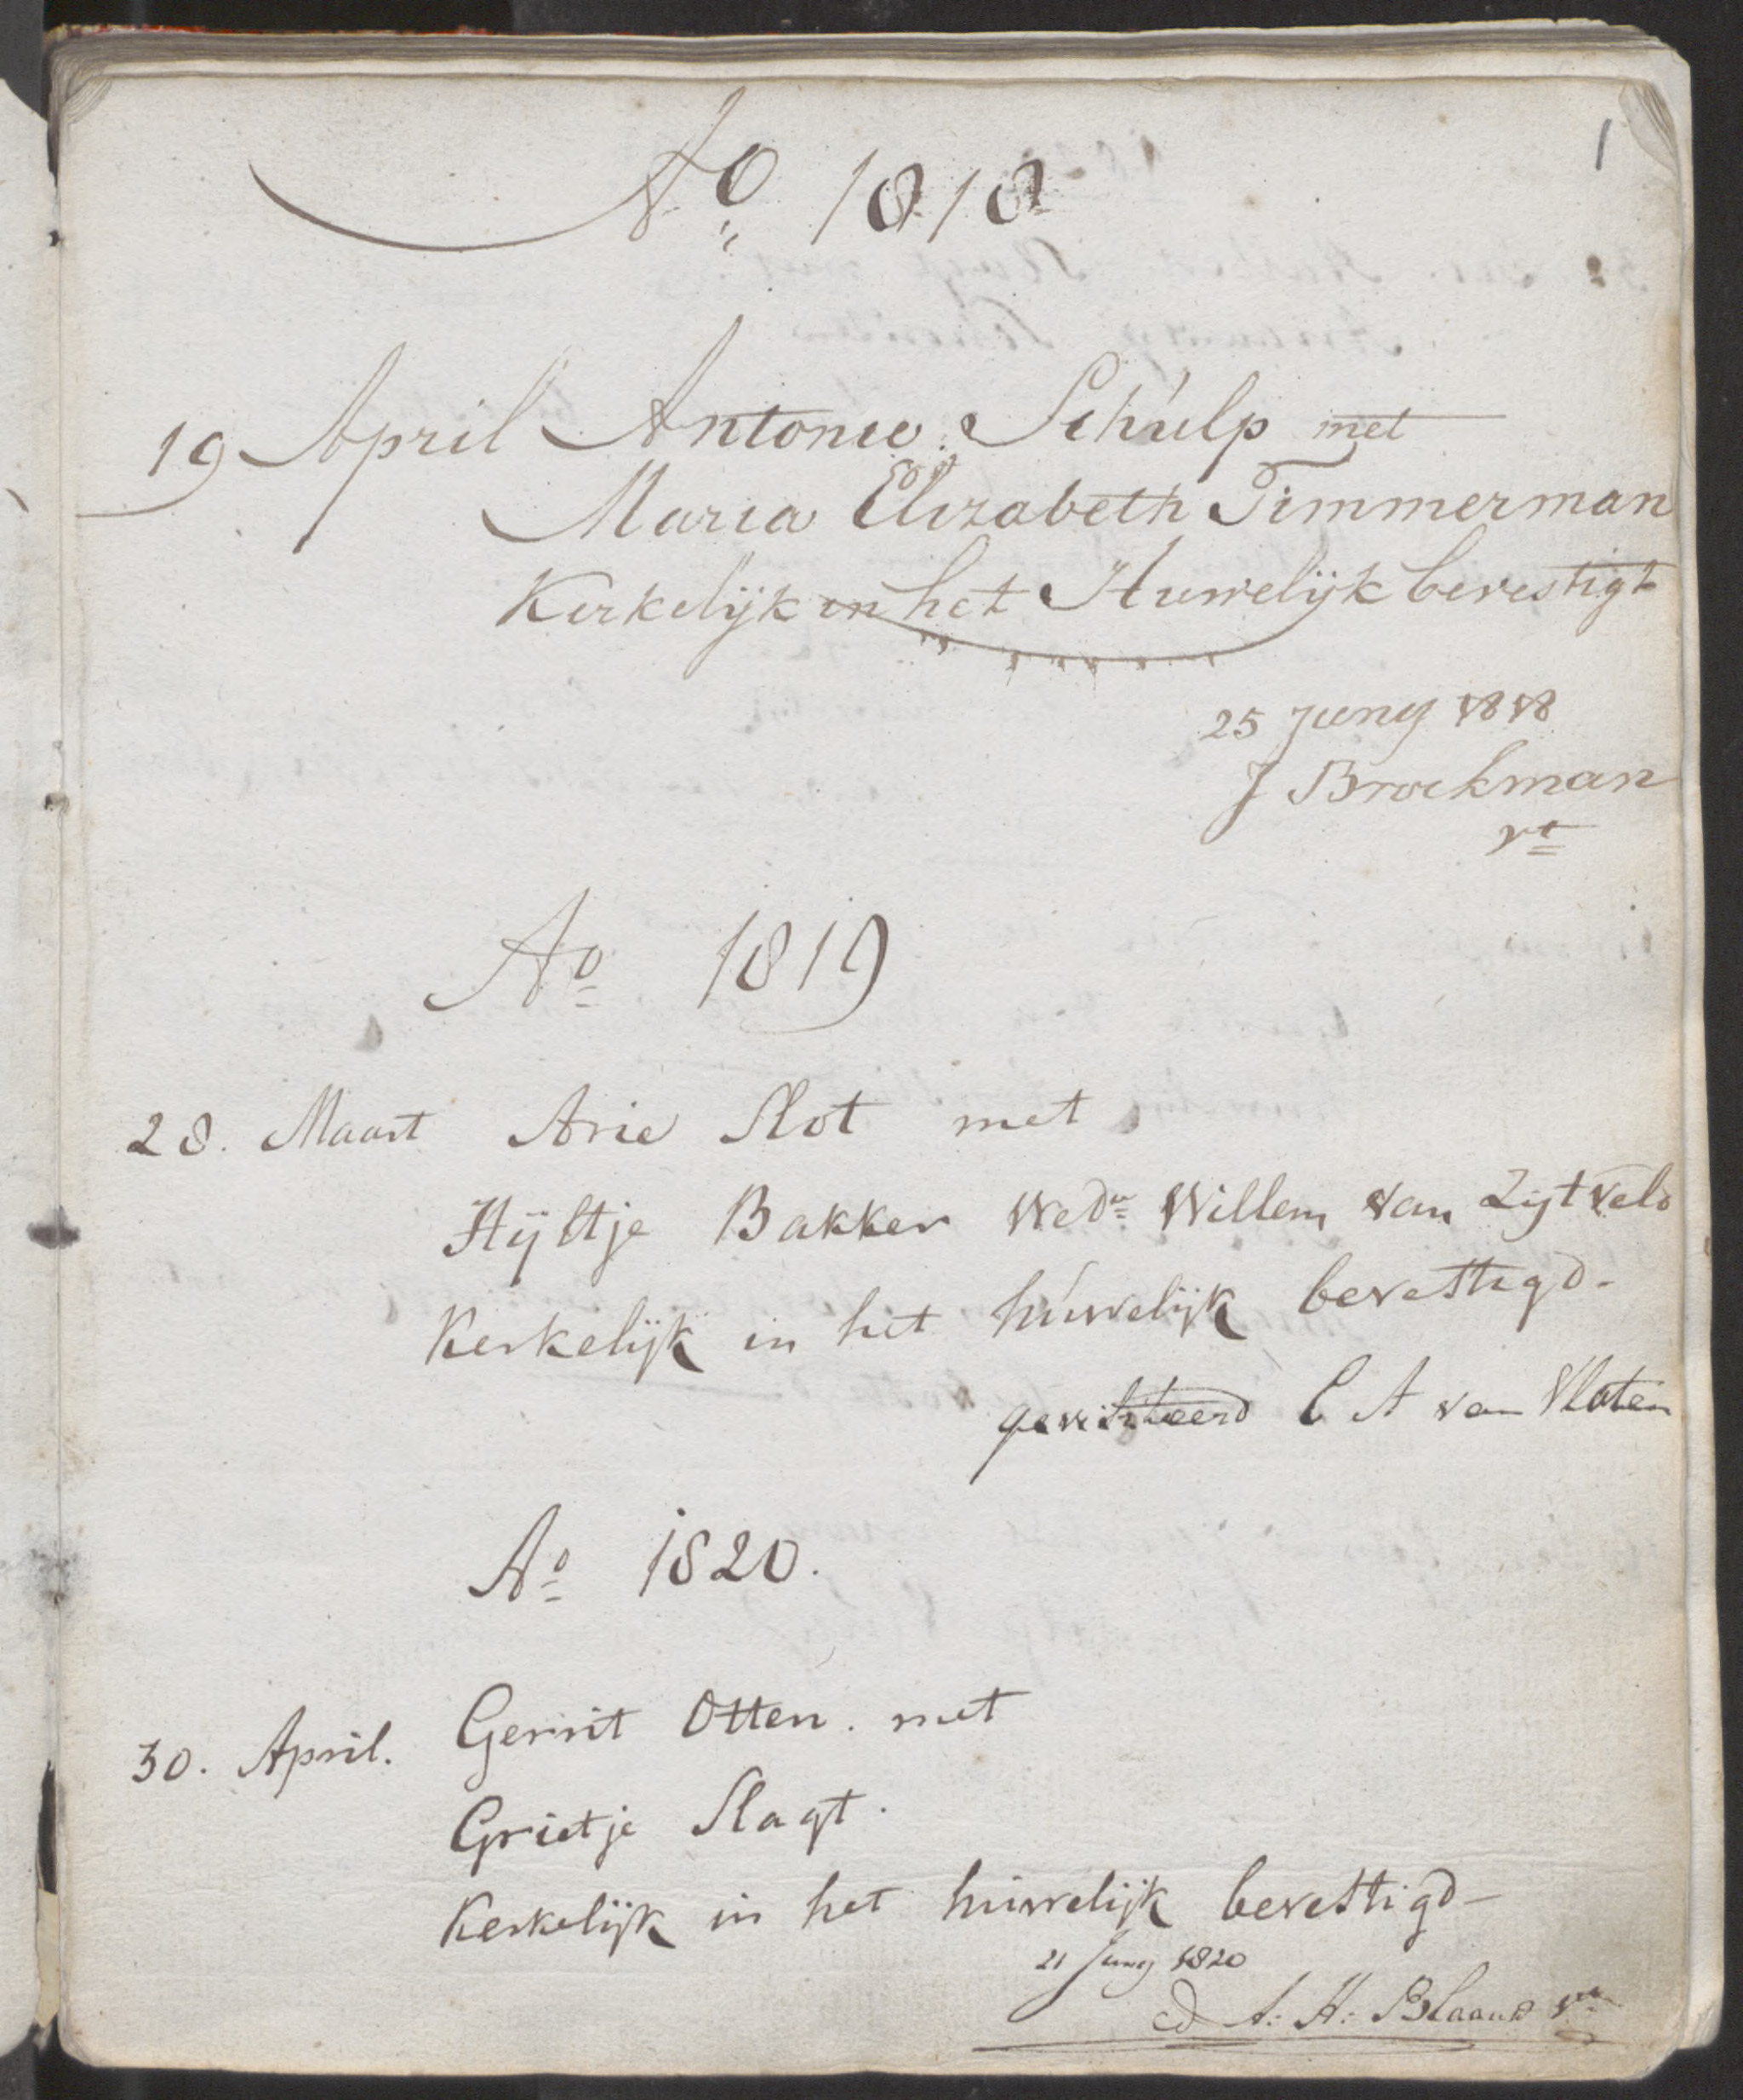 1
Ao 1818
19 April Antonie Schulp met
Maria Elizabeth Timmerman
Kerkelijk in het Huwelijk bevestigt
25 Juny 1818
J Broekman
vt
Ao 1819
28. Maart Arie Slot met
Hijltje Bakker Wedu Willem van Zijtveld
Kerkelijk in het húwelijk bevestigd-
gevisiteerd C A van Vloten
Ao 1820.
30. April. Gerrit Otten. met
Grietje Slagt.
Kerkelijk in het huwelijk bevestigd-
21 Juny 1820
A: H: Blaauw